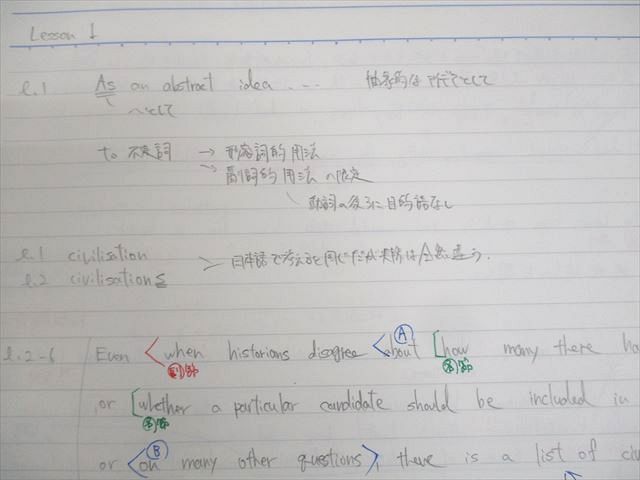 Lesson 1
l.1 As an abstract idea ... 抽象的な アイデアとして
〜として
to 不定詞 → 形容詞的用法
→ 副詞的用法 へ限定
動詞の後ろに目的語なし
l.1 civilisation
l.2 civilisations
日本語で考えると同じだが実際は全然違う.
l.2-6 Even <when historians disagree <about [how many there ha
副節 Ⓐ 名節
or [whether a particular candidate should be included in
名節
or <on many other questions>, there is a list of civ
Ⓑ